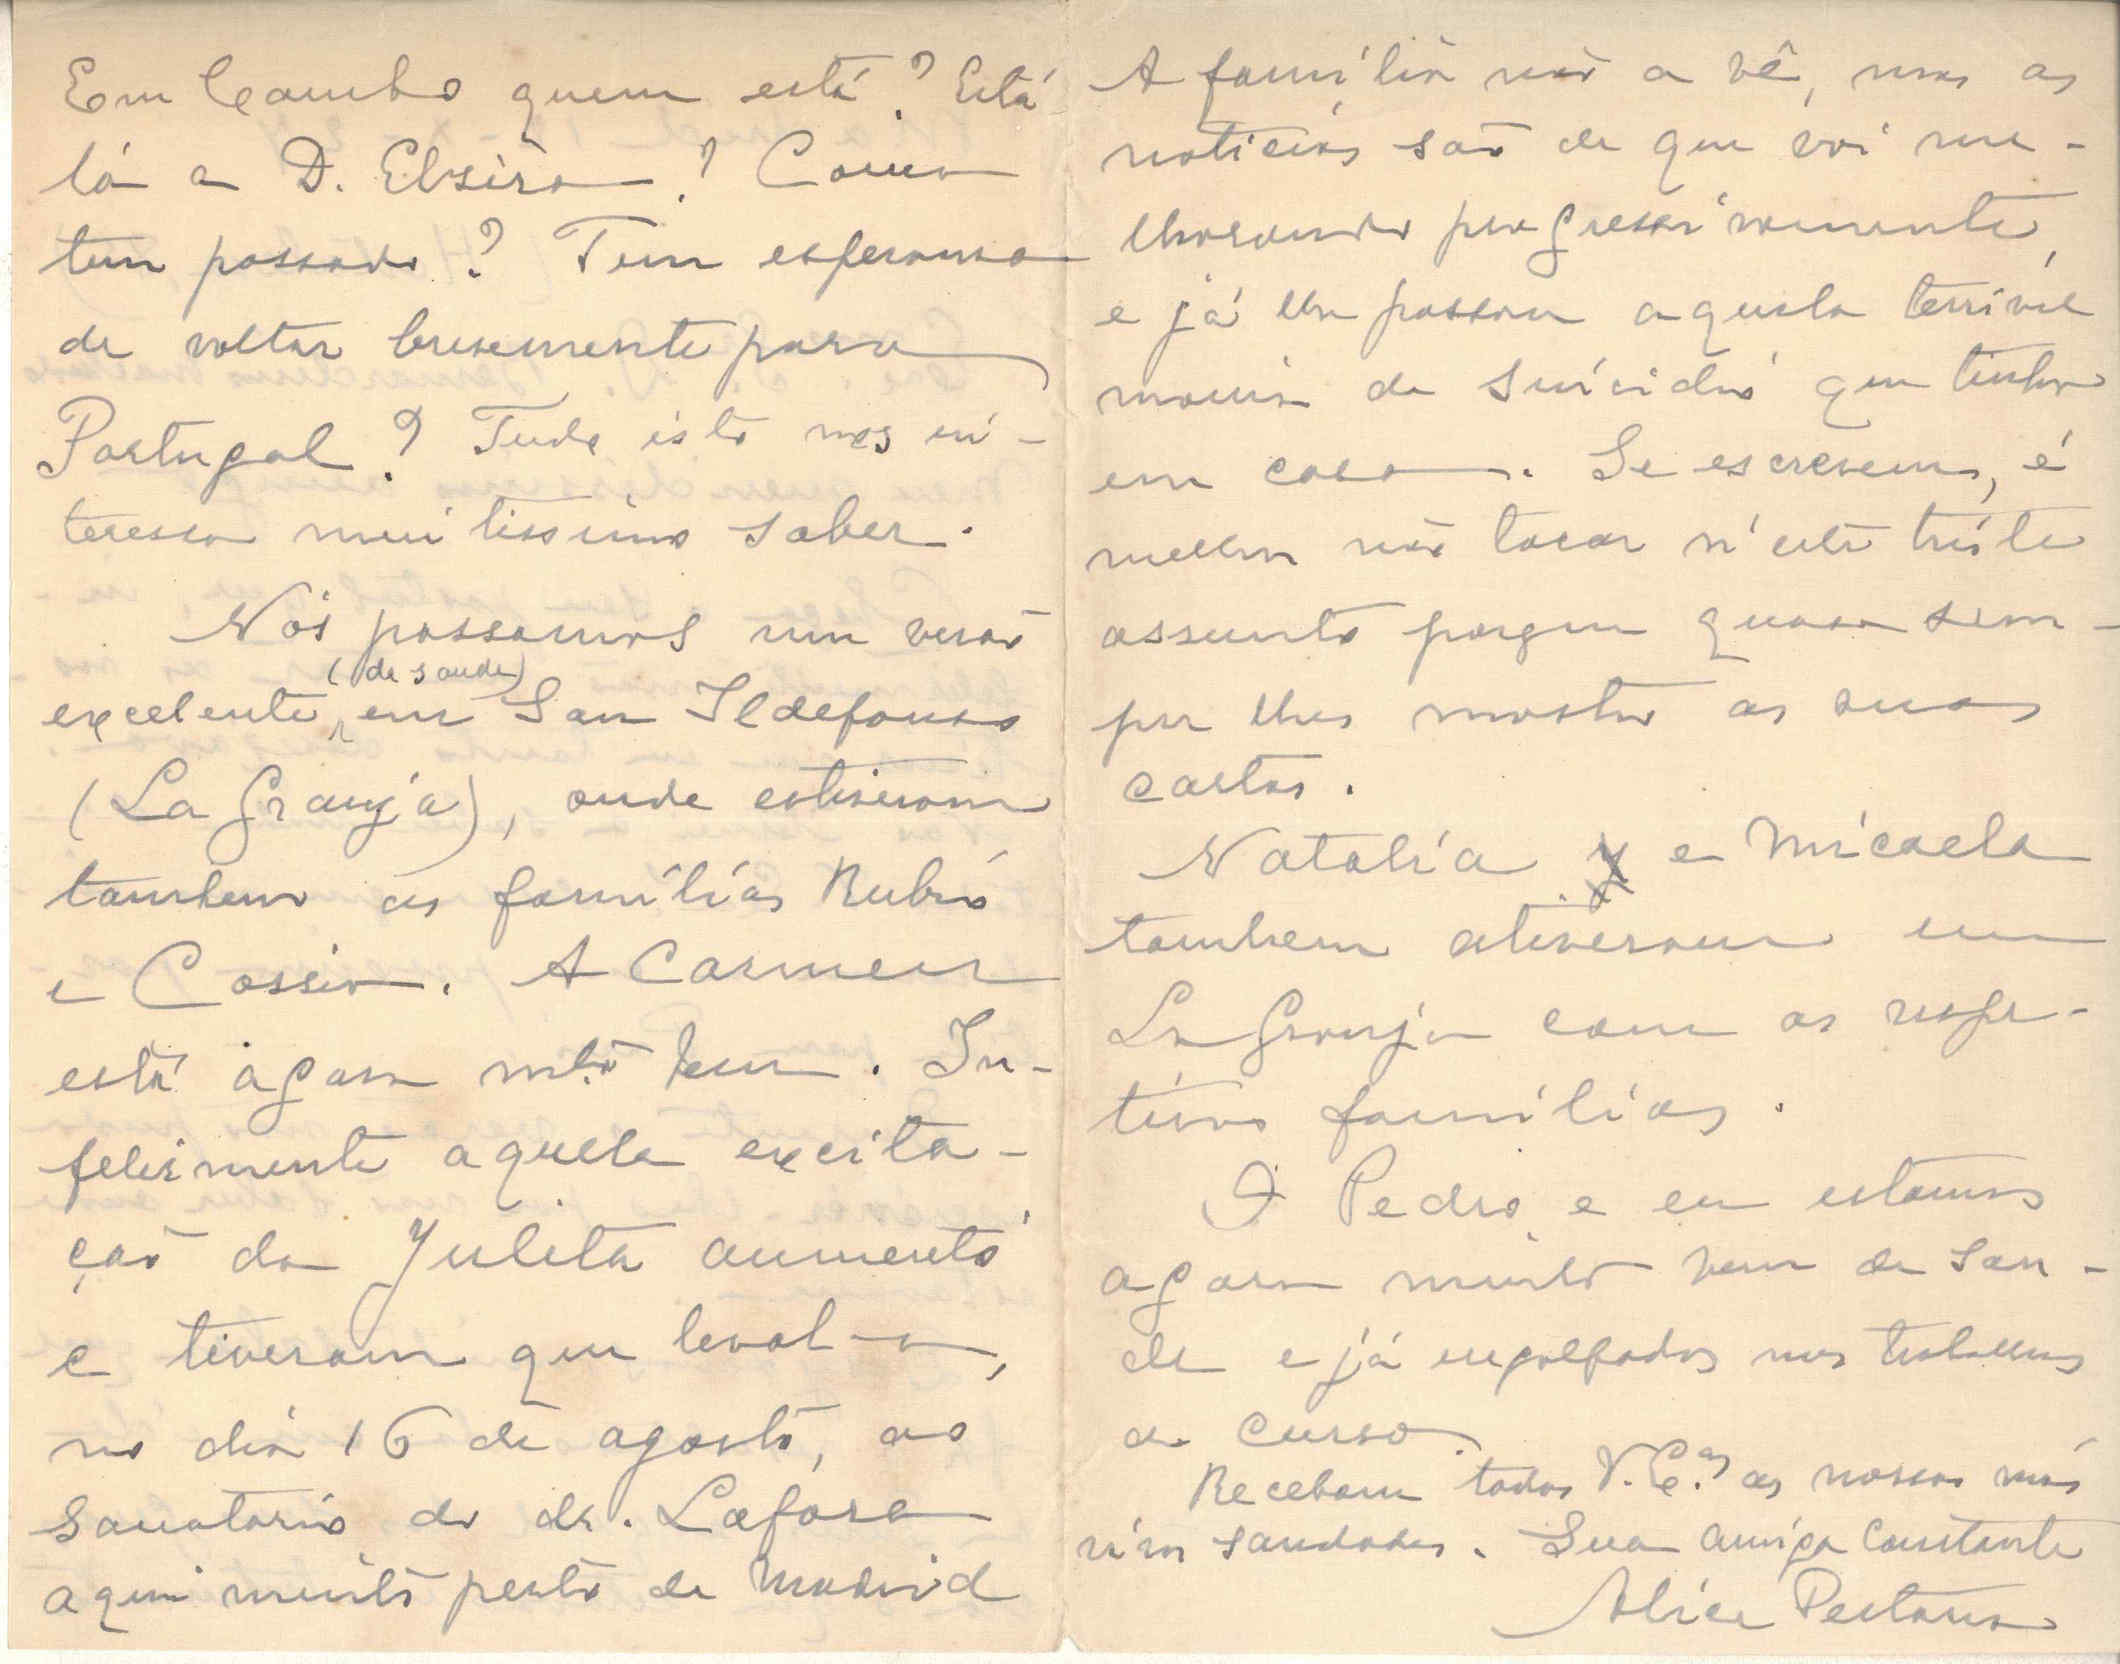 Em Cambo quem está? Está
lá a D. Elzira? Como
tem passado? Tem esperança
de voltar brevemente para
Portugal? Tudo isto nos in-
teressa muitissimo saber.
Nós passamos um verão
excelente (de saude) em San Ildefonso
(La Granja), onde estiveram
tambem as familias Rubio
e Cossio. A Carmen
está agora mto bem. In-
felizmente aquela excita-
ção da Julieta aumentó
e tiveram que leval-a,
no dia 16 de agosto, ao
Sanatorio do dr. Lafora
aqui muito perto de Madrid
A familia não a vê, mas as
noticias são de que vai me-
lhorando progressivamente,
e já lhe passou aquela terrivel
mania de suicidio que tinha
em casa. Se escrevem, é
melhor não tocar n'este triste
assunto porque quasi sem-
pre lhes mostro as suas
cartas.
Natalia y e Micaela
tambem estiveram em
La Granja com as respe-
tivas familias.
O Pedro e eu estamos
agora muito bem de sau-
de e já engolfados nos trabalhos
do curso.
Recebam todos V. Ex.as as nossas mais
vivas saudades. Sua amiga constante
Alice Pestana